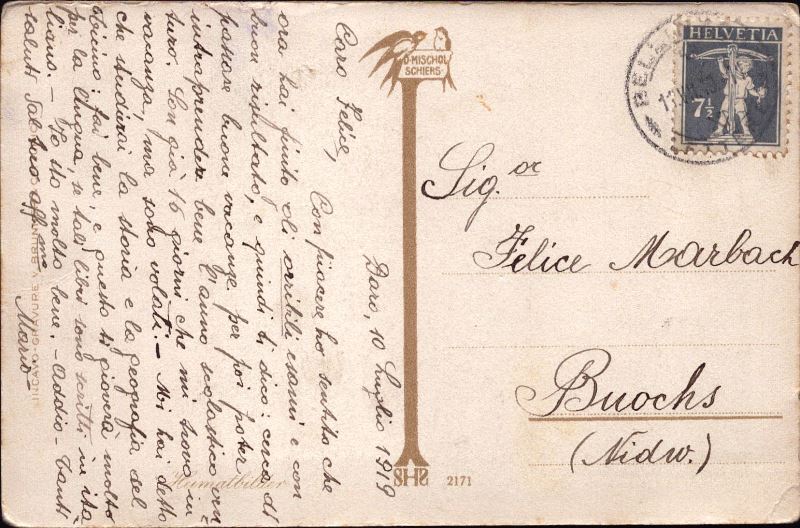 Daro, 10 Luglio 1919
Caro Felice,
Con piacere ho sentito che
ora hai finito gli orribili esami e con
buon risultato, e quindi ti dico: cerca di
passare buone vacanze, per poi poter
intraprender bene l'anno scolastico ven
turo. Son già 16 giorni che mi trovo in
vacanza, ma sono volati. - Mi hai detto
che studierai la storia e la geografia del
Ticino: fai bene, e questo ti gioverà molto
per la lingua, se tali libri sono scritti in ita
liano. - Io sto molto bene. - Addio - Tanti
saluti dal tuo aff.mo
Mario
O. MISCHOL
SCHIERS
SHS 2171
Heimatbilder
HELVETIA
7½
Sig.or
Felice Marbach
Buochs
(Nidw.)